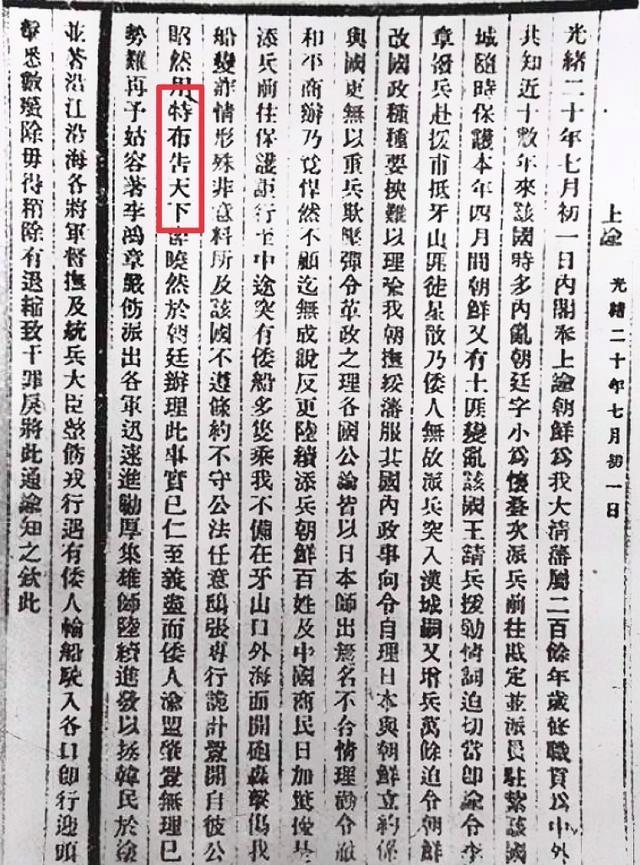 上諭
光緒二十年七月初一日
光緒二十年七月初一日內閣奉上諭朝鮮爲我大清藩屬二百餘年歲修職貢爲中外
共知近十數年來該國時多內亂朝廷字小爲懷疊次派兵前往戡定並派員駐紮該國
城隨時保護本年四月間朝鮮又有土匪變亂該國王請兵援勦情詞迫切當卽諭令李
章撥兵赴援甫抵牙山匪徒星散乃倭人無故派兵突入漢城嗣又增兵萬餘迫令朝鮮
改國政種種要挾難以理喻我朝撫綏藩服其國內政事向令自理日本與朝鮮立約係
與國更無以重兵欺壓彊令革政之理各國公論皆以日本師出無名不合情理勸令撤
和平商辦乃竟悍然不顧迄無成說反更陸續添兵朝鮮百姓及中國商民日加驚擾是
添兵前往保護詎行至中途突有倭船多隻乘我不備在牙山口外海面開砲轟擊傷我
船變詐情形殊非意料所及該國不遵條約不守公法任意鴟張專行詭計釁開自彼公
昭然用特布告天下俾曉然於朝廷辦理此事實已仁至義盡而倭人渝盟肇釁無理已
勢難再予姑容著李鴻章嚴飭派出各軍迅速進勦厚集雄師陸續進發以拯韓民於塗
並著沿江沿海各將軍督撫及統兵大臣整飭戎行遇有倭人輪船駛入各口卽行迎頭
擊悉數殲除毋得稍除有退縮致干罪戾將此通諭知之欽此